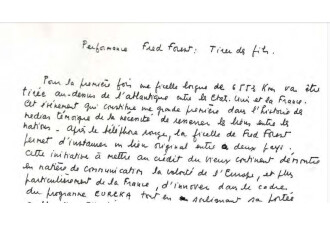 Performance Fred Forest: Tirer de fils.
Pour la première fois une ficelle longue de 6552 Km va être
tirée au-dessus de l'atlantique entre les Etats-Unis et la France.
Cet événement qui constitue une grande première dans l'histoire des
medias témoigne de la nécessité de resserrer les liens entre les
nations - après le téléphone rouge, la ficelle de Fred Forest
permet d'instaurer un lien original entre deux pays.
Cette initiative à mettre au crédit du vieux continent démontre
en matière de communication la volonté de l'Europe, et plus
particulièrement de la France, d'innover dans le cadre
du programme EUREKA tout en soulignant sa portée